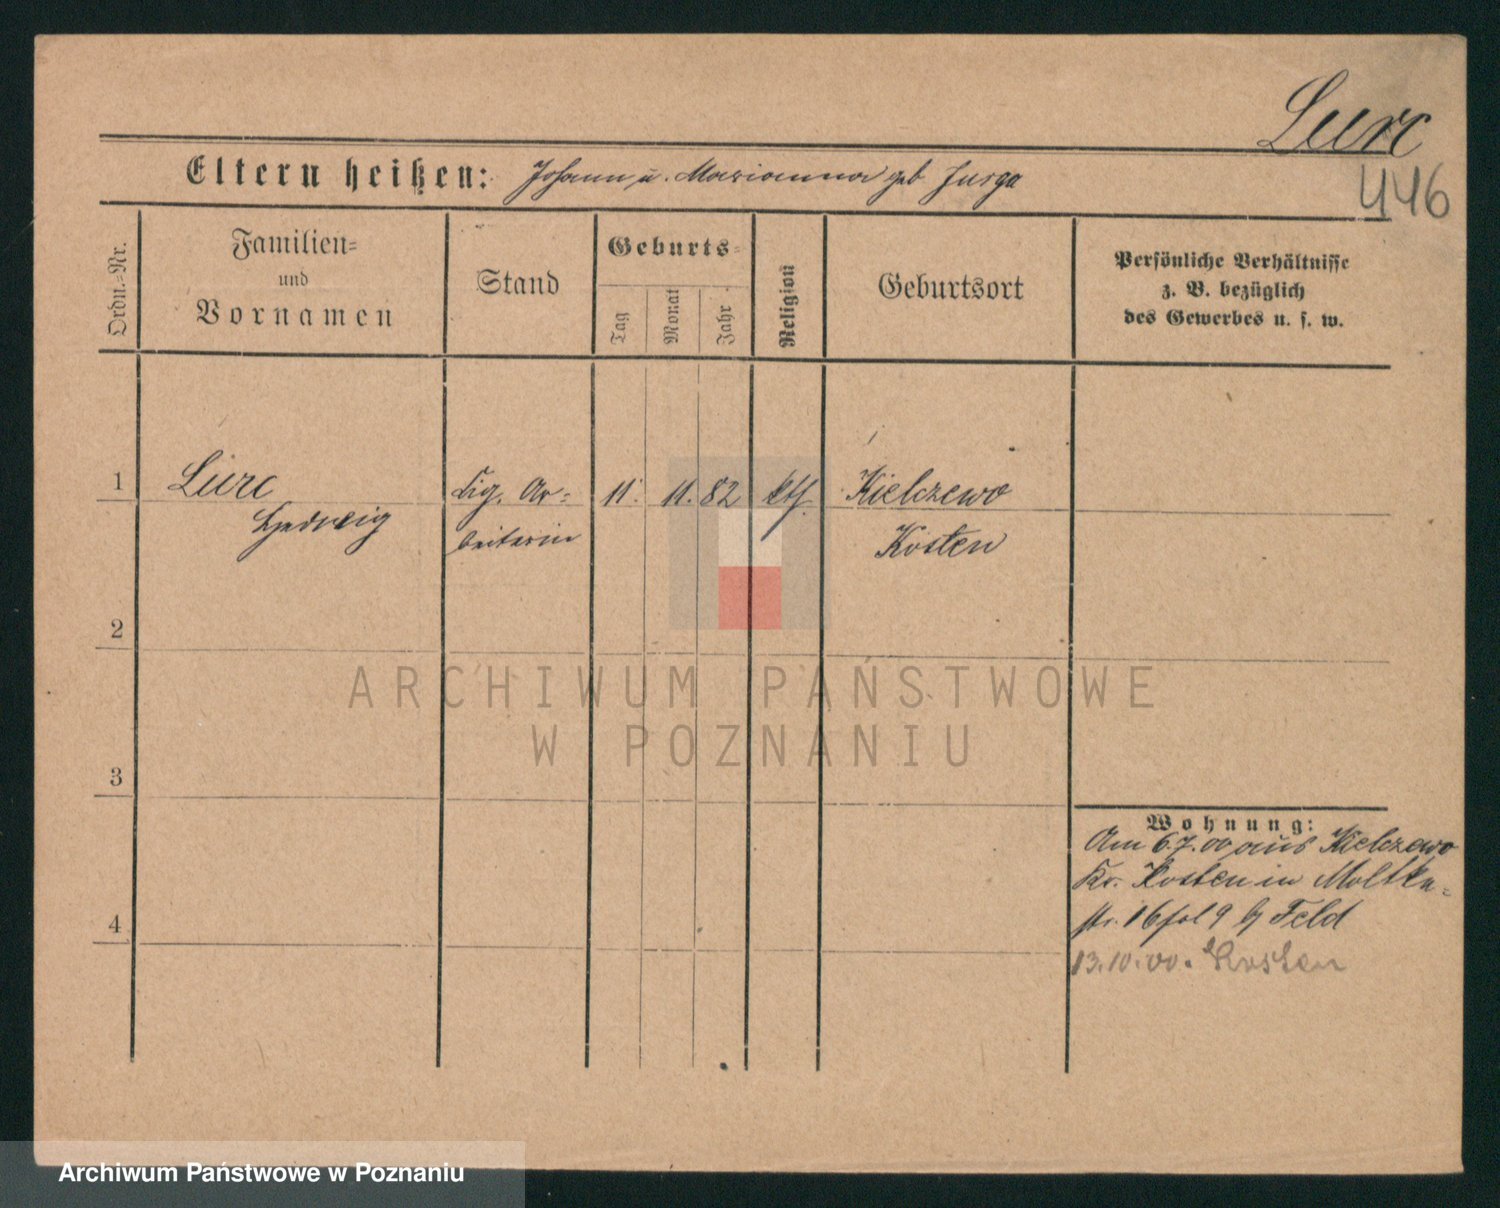 Lurc
446
Eltern heißen: Johann u. Marianna geb Jurga
Ordn.=Nr.
Familien=
und
Vornamen
Stand
Geburts=
Tag
Monat
Jahr
Religion
Geburtsort
Persönliche Verhältnisse
z. B. bezüglich
des Gewerbes u. s. w.
1
Lurc
Hedwig
Cig. Ar=
beiterin
11. 11. 82
kth.
Kielczewo
Kosten
2
3
4
Wohnung:
Am 6.7.00 aus Kielczewo
Kr. Kosten in Moltke=
str. 16 9 Feld
13.10.00. Kosten
ARCHIWUM PAŃSTWOWE
W POZNANIU
Archiwum Państwowe w Poznaniu